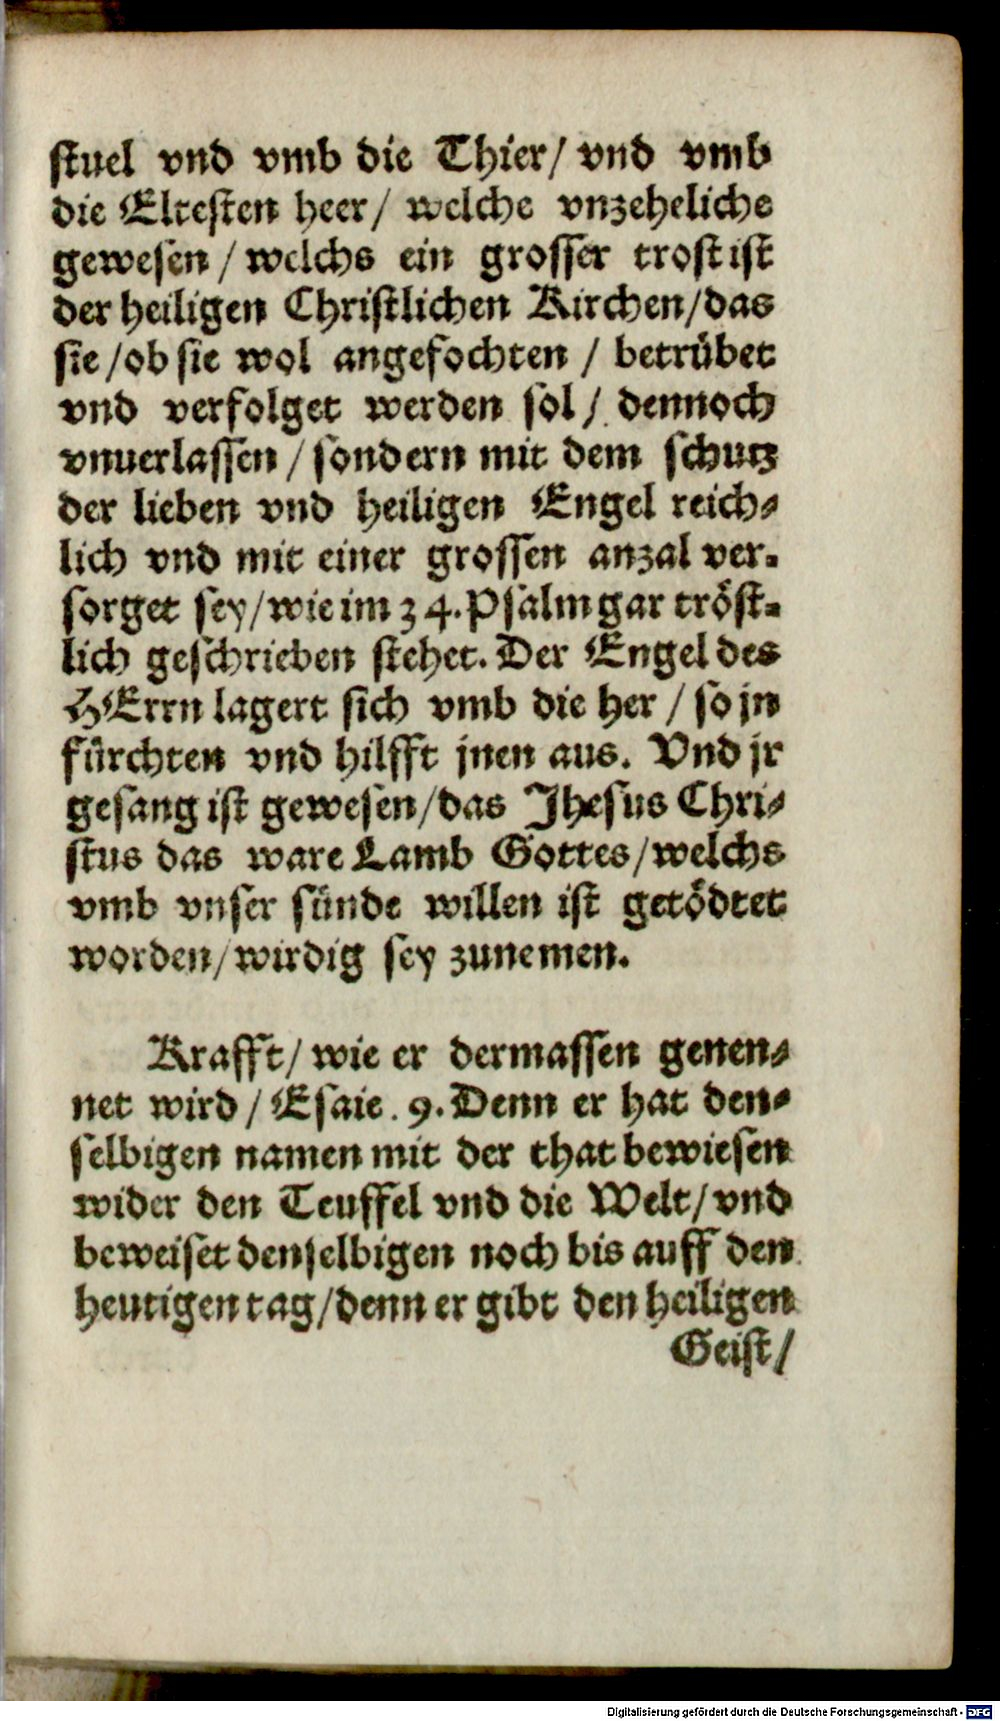 stuel vnd vmb die Thier/ vnd vmb
die Eltesten heer/ welche vnzeheliche
gewesen/ welchs ein grosser trost ist
der heiligen Christlichen Kirchen/das
sie/ob sie wol angefochten/ betrübet
vnd verfolget werden sol/ dennoch
vnuerlassen/ sondern mit dem schutz
der lieben vnd heiligen Engel reich-
lich vnd mit einer grossen anzal ver-
sorget sey/wie im 34. Psalm gar tröst-
lich geschrieben stehet. Der Engel des
HErrn lagert sich vmb die her/ so jn
fürchten vnd hilfft jnen aus. Vnd jr
gesang ist gewesen/das Jhesus Chri-
stus das ware Lamb Gottes/welchs
vmb vnser sünde willen ist getödtet
worden/wirdig sey zunemen.
Krafft/ wie er dermassen genen-
net wird/ Esaie. 9. Denn er hat den-
selbigen namen mit der that bewiesen
wider den Teuffel vnd die Welt/ vnd
beweiset denselbigen noch bis auff den
heutigen tag/denn er gibt den heiligen
Geist/
Digitalisierung gefördert durch die Deutsche Forschungsgemeinschaft - DFG